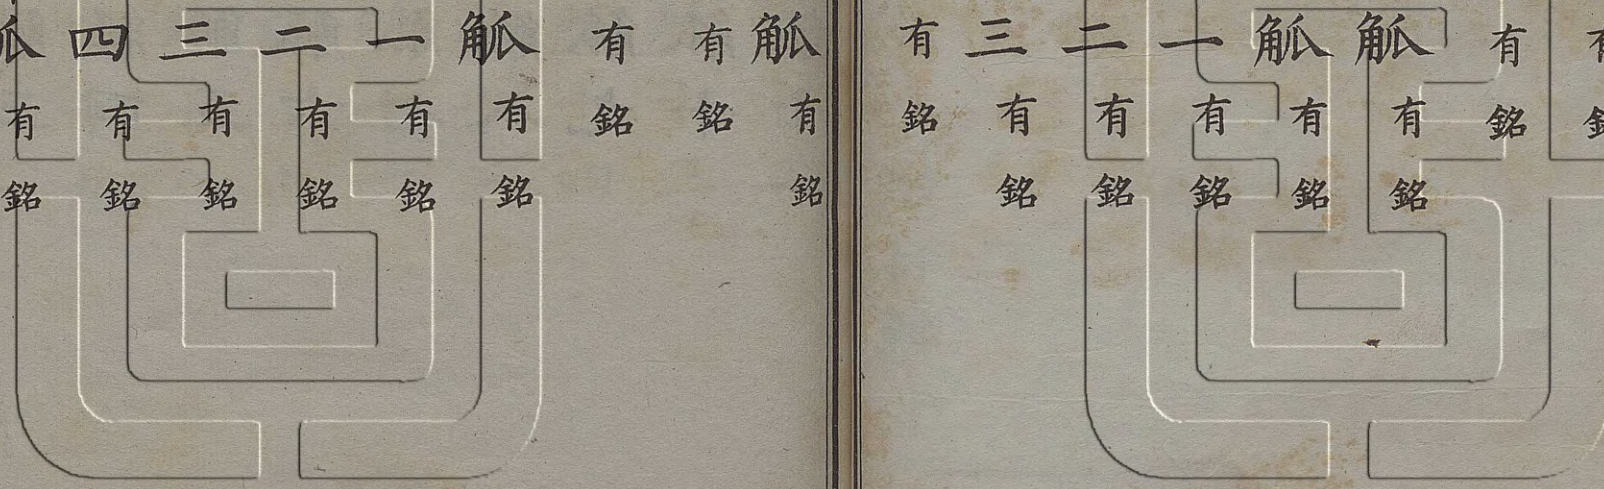 有銘
觚有銘
觚有銘
一有銘
二有銘
三有銘
有銘
觚有銘
有銘
有銘
觚有銘
一有銘
二有銘
三有銘
四有銘
有銘